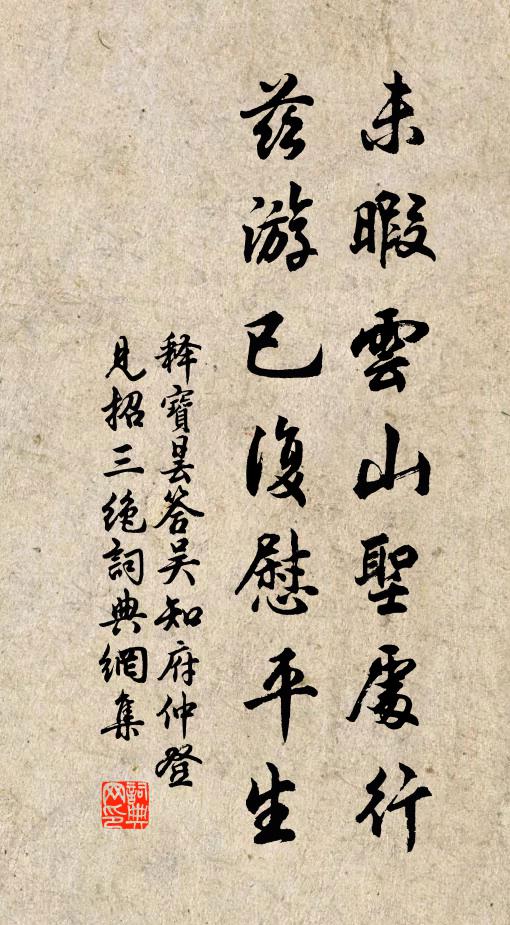 未暇雲山聖處行
茲游已復慰平生
释寶曇答吴知府仲登
見招三绝詞典網集
詞典网印